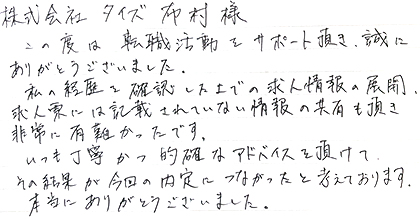 株式会社 タイズ 布村 様
この度は 転職活動を サポート頂き、誠に
ありがとうございました。
私の経歴を確認した上での求人情報の展開、
求人票には記載されていない情報の共有も頂き
非常に有難かったです。
いつも丁寧かつ的確なアドバイスを頂けて
その結果が今回の内定につながったと考えております。
本当にありがとうございました。